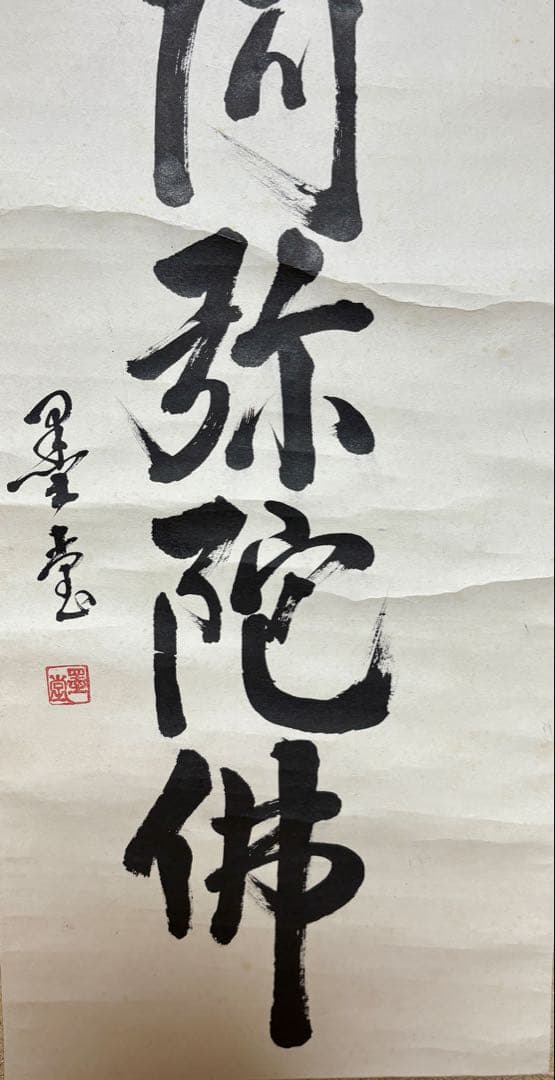 弥陀佛
墨堂
墨堂